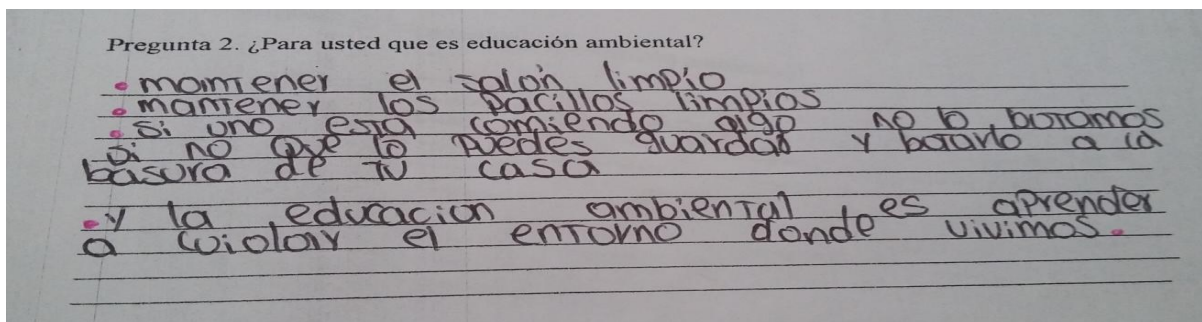 Pregunta 2. ¿Para usted que es educación ambiental?
• mantener el salón limpio
• mantener los pacillos limpios
• si uno esta comiendo algo no lo botamos
si no que lo puedes guardar y botarlo a la
basura de tu casa
• y la educacion ambiental es aprender
a cuidar el entorno donde vivimos.